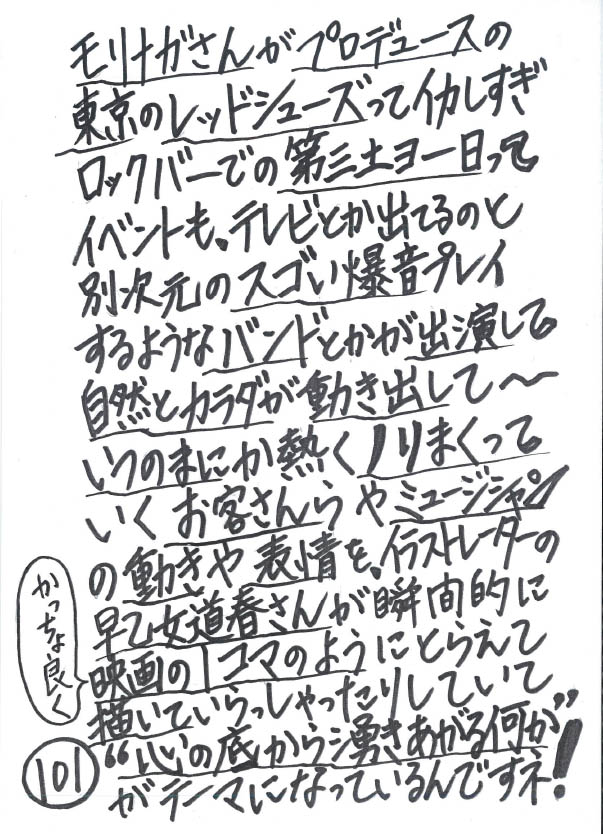 モリナガさんがプロデュースの
東京のレッドシューズってイカしすぎ
ロックバーでの第三土ヨー日って
イベントも、テレビとか出てるのと
別次元のスゴい爆音プレイ
するようなバンドとかが出演して
自然とカラダが動き出して〜
いつのまにか熱くノリまくって
いくお客さんらやミュージシャン
の動きや表情を、イラストレーターの
早乙女道春さんが瞬間的に
映画の1コマのようにとらえて
かっちょ良く
描いていらっしゃったりしていて
“心の底から湧きあがる何か”
がテーマになっているんですネ!
101